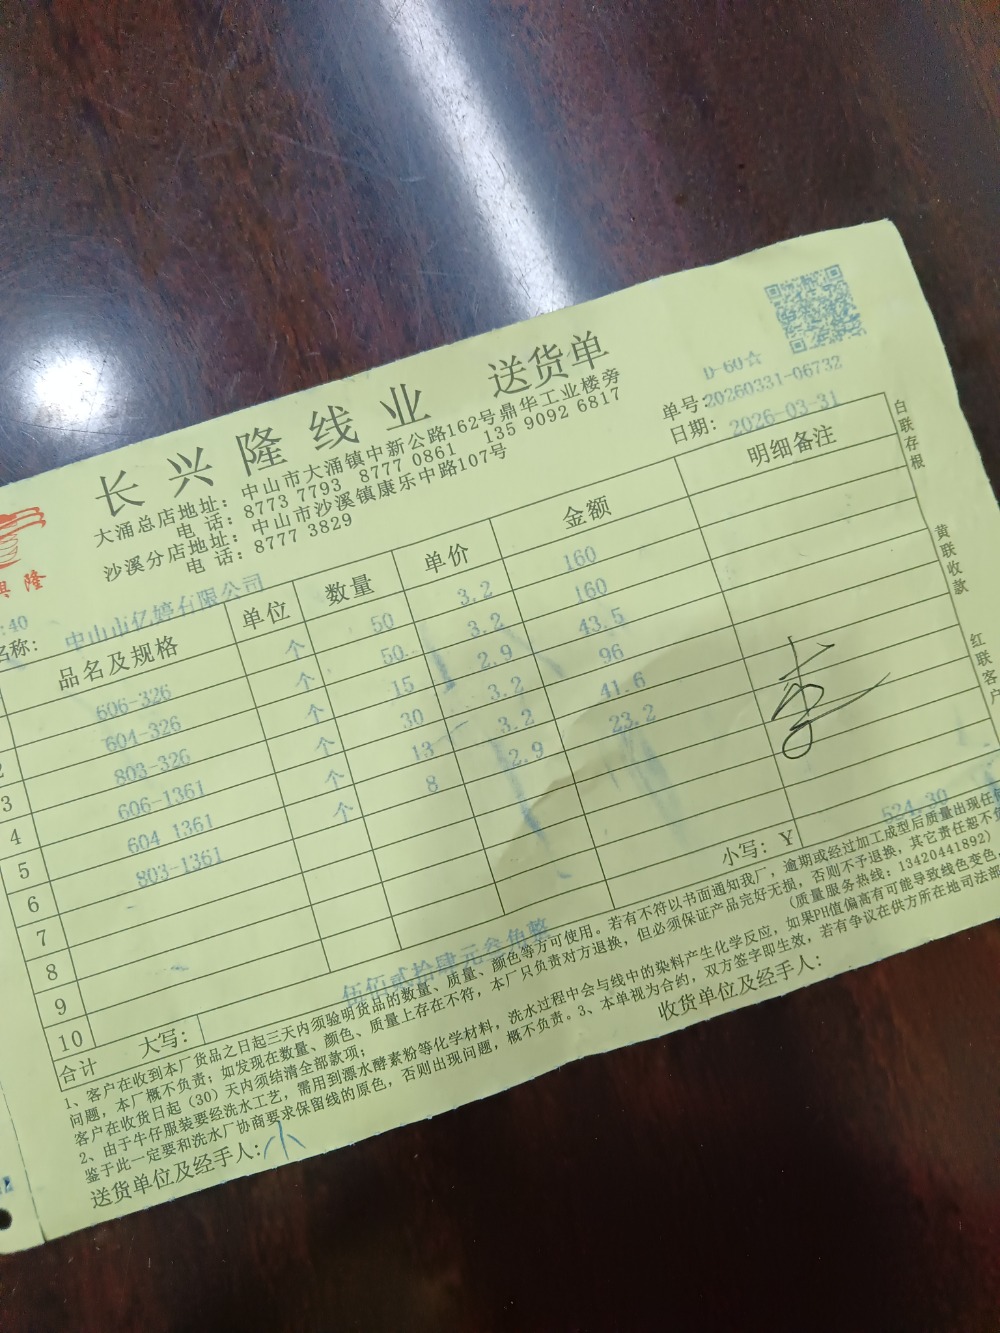 长兴隆线业 送货单
D-60☆
大涌总店地址：中山市大涌镇中新公路162号鼎华工业楼旁
电 话：8773 7793 8777 0861 135 9092 6817
沙溪分店地址：中山市沙溪镇康乐中路107号
电 话：8777 3829
单号：20260331-06732
日期：2026-03-31
興 隆
:40
名称：中山市亿婷有限公司
品名及规格 单位 数量 单价 金额 明细备注
606-326 个 50 3.2 160
2 604-326 个 50 3.2 160
3 803-326 个 15 2.9 43.5
4 606-1361 个 30 3.2 96
5 604 1361 个 13 3.2 41.6
6 803-1361 个 8 2.9 23.2
7
8
9
10
合计 大写：伍佰贰拾肆元叁角整 小写：Y 524.30
1、客户在收到本厂货品之日起三天内须验明货品的数量、质量、颜色等方可使用。若有不符以书面通知我厂，逾期或经过加工成型后质量出现任何
问题，本厂概不负责；如发现在数量、颜色、质量上存在不符，本厂只负责对方退换，但必须保证产品完好无损，否则不予退换，其它责任恕不负
客户在收货日起（30）天内须结清全部款项； （质量服务热线：13420441892）
2、由于牛仔服装要经洗水工艺，需用到漂水酵素粉等化学材料，洗水过程中会与线中的染料产生化学反应，如果PH值偏高有可能导致线色变色，
鉴于此一定要和洗水厂协商要求保留线的原色，否则出现问题，概不负责。3、本单视为合约，双方签字即生效，若有争议在供方所在地司法部
送货单位及经手人：小 收货单位及经手人：
李
白联存根
黄联收款
红联客户